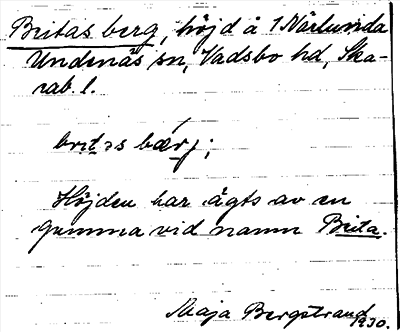 Britas berg, höjd å 1 Närlunda
Undenäs sn, Vadsbo hd, Ska-
rab. l.
britəs bærj;
Höjden har ägts av en
gumma vid namn Brita.
Maja Bergstrand
1930.